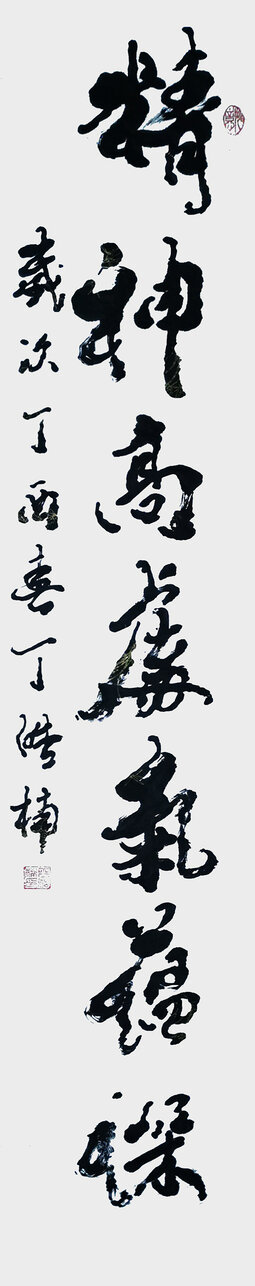 精神高處氣蘊深
歲次丁酉春丁楠